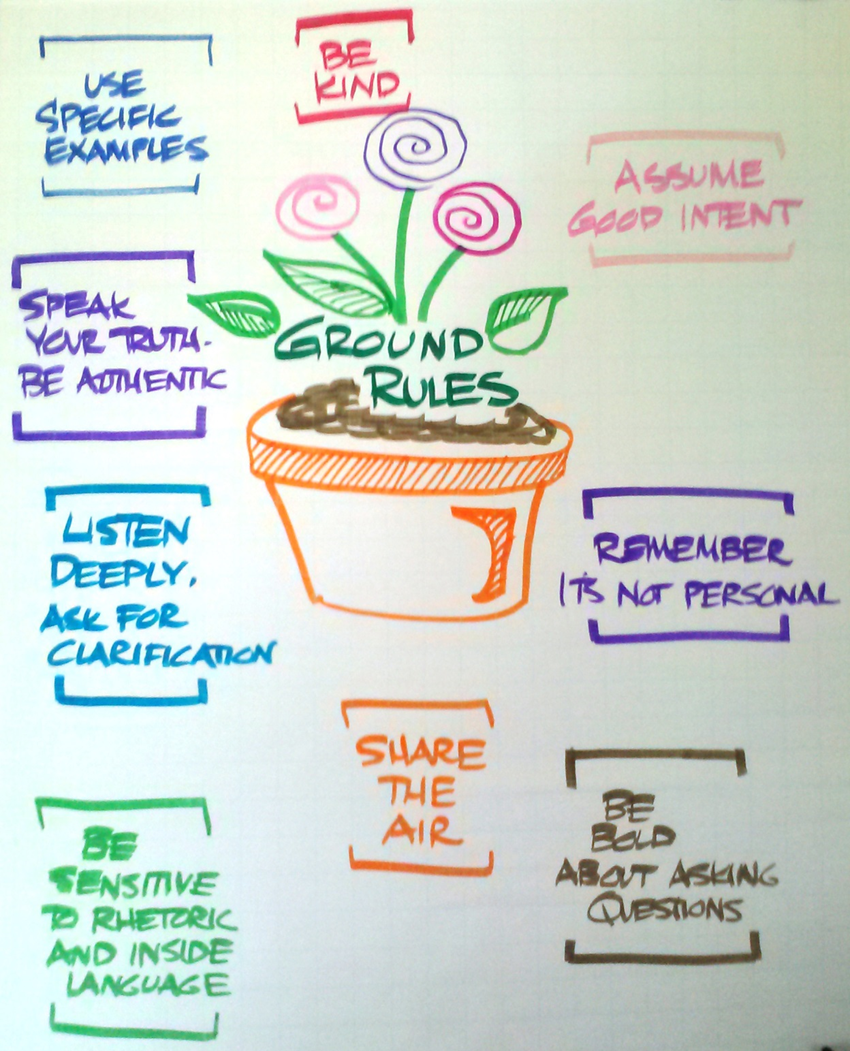 BE
KIND
USE
SPECIFIC
EXAMPLES
ASSUME
GOOD INTENT
SPEAK
YOUR TRUTH.
BE AUTHENTIC
GROUND
RULES
LISTEN
DEEPLY.
ASK FOR
CLARIFICATION
REMEMBER
IT'S NOT PERSONAL
SHARE
THE
AIR
BE
BOLD
ABOUT ASKING
QUESTIONS
BE
SENSITIVE
TO RHETORIC
AND INSIDE
LANGUAGE